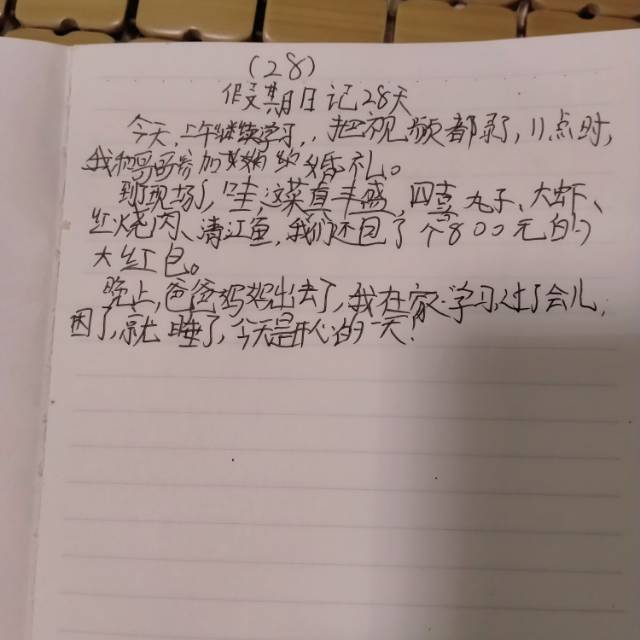 (28)
假期日记28天
今天,上午继续学习,,把视频都录了,11点时,
我和哥哥参加姑姑的婚礼。
到现场了,哇,这菜真丰盛,四喜丸子、大虾、
红烧肉、清江鱼,我们还包了个800元的
大红包。
晚上,爸爸妈妈出去了,我在家学习,过了会儿,
困了,就睡了,今天是开心的一天!